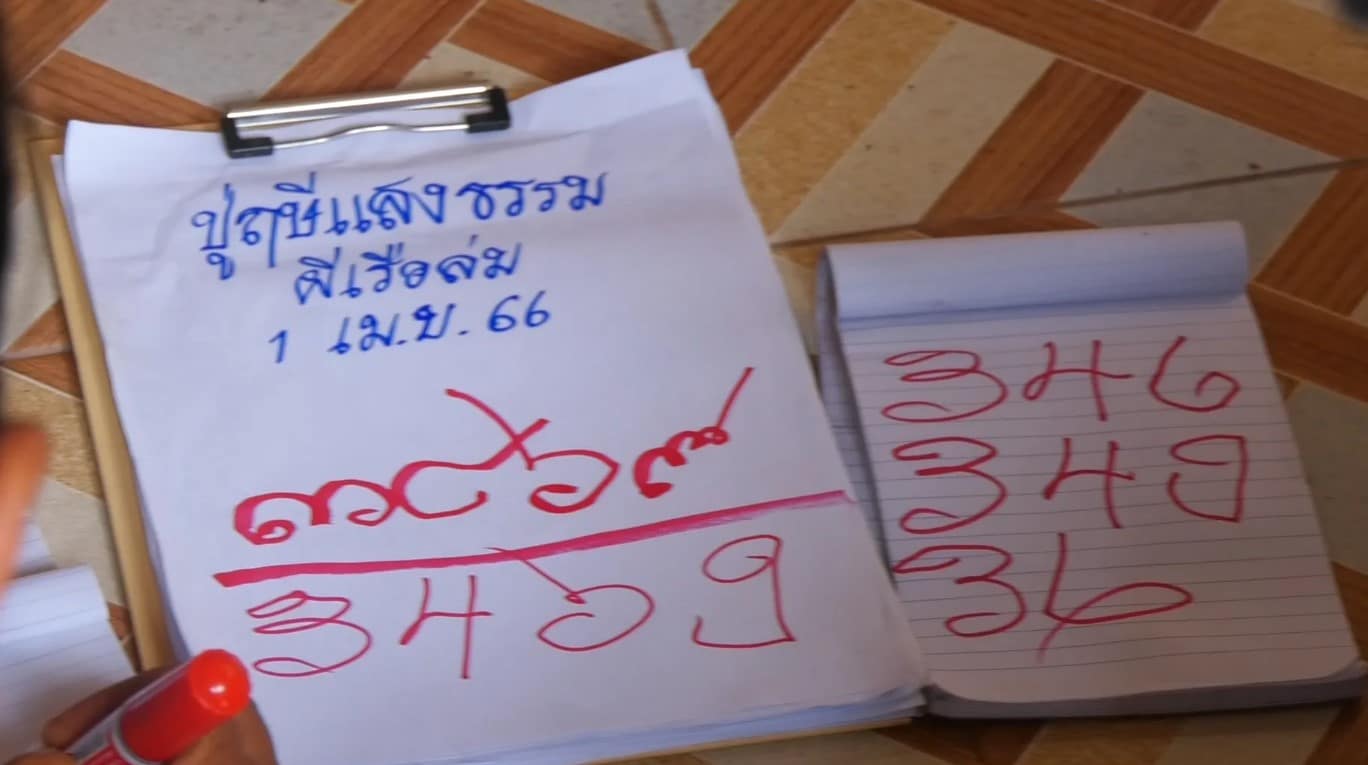 ปู่ฤษีแสงธรรม
ผีเรือล่ม
1 เม.ย. 66
๓๔๖๙
3469
346
349
36